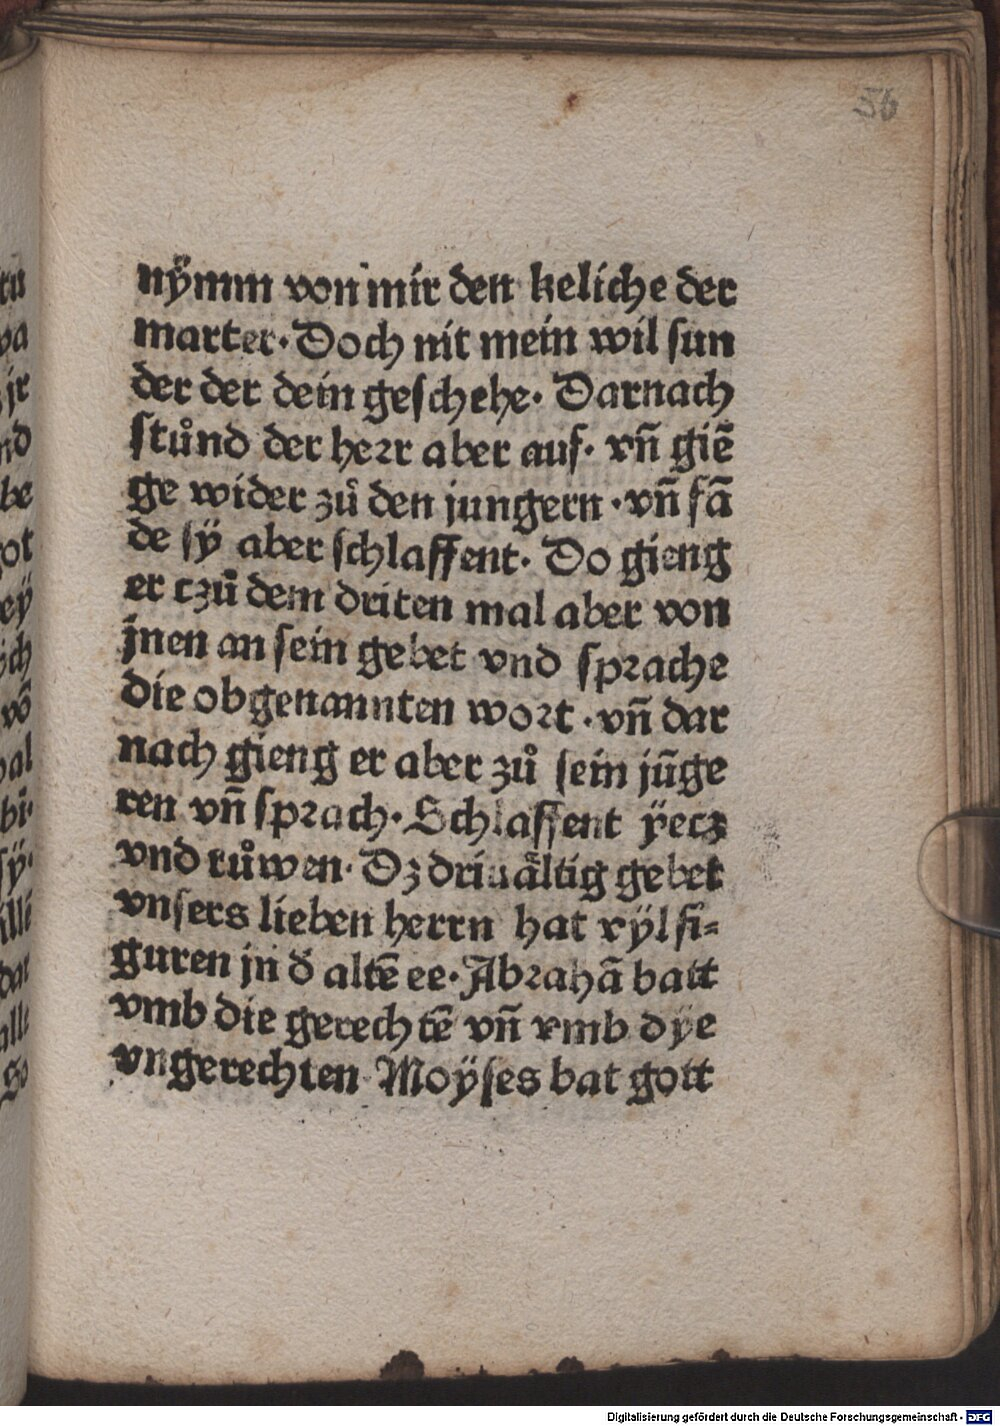 56
nÿmm von mir den keliche der
marter. Doch nit mein wil sun
der der dein geschehe. Darnach
stůnd der herr aber auf. vn̄ giē
ge wider zů den jungern. vn̄ fā
de sÿ aber schlaffent. Do gieng
er czů dem driten mal aber von
jnen an sein gebet vnd sprache
die obgenannten wort. vn̄ dar
nach gieng er aber zů sein jūge
ren vn̄ sprach. Schlaffent ÿecz
vnd růwen. Dz driuåltig gebet
vnsers lieben herrn hat vÿl fi=
guren jn d̄ altē ee. Abrahā batt
vmb die gerechtē vn̄ vmb dÿe
vngerechten Moÿses bat gott
Digitalisierung gefördert durch die Deutsche Forschungsgemeinschaft - DFG